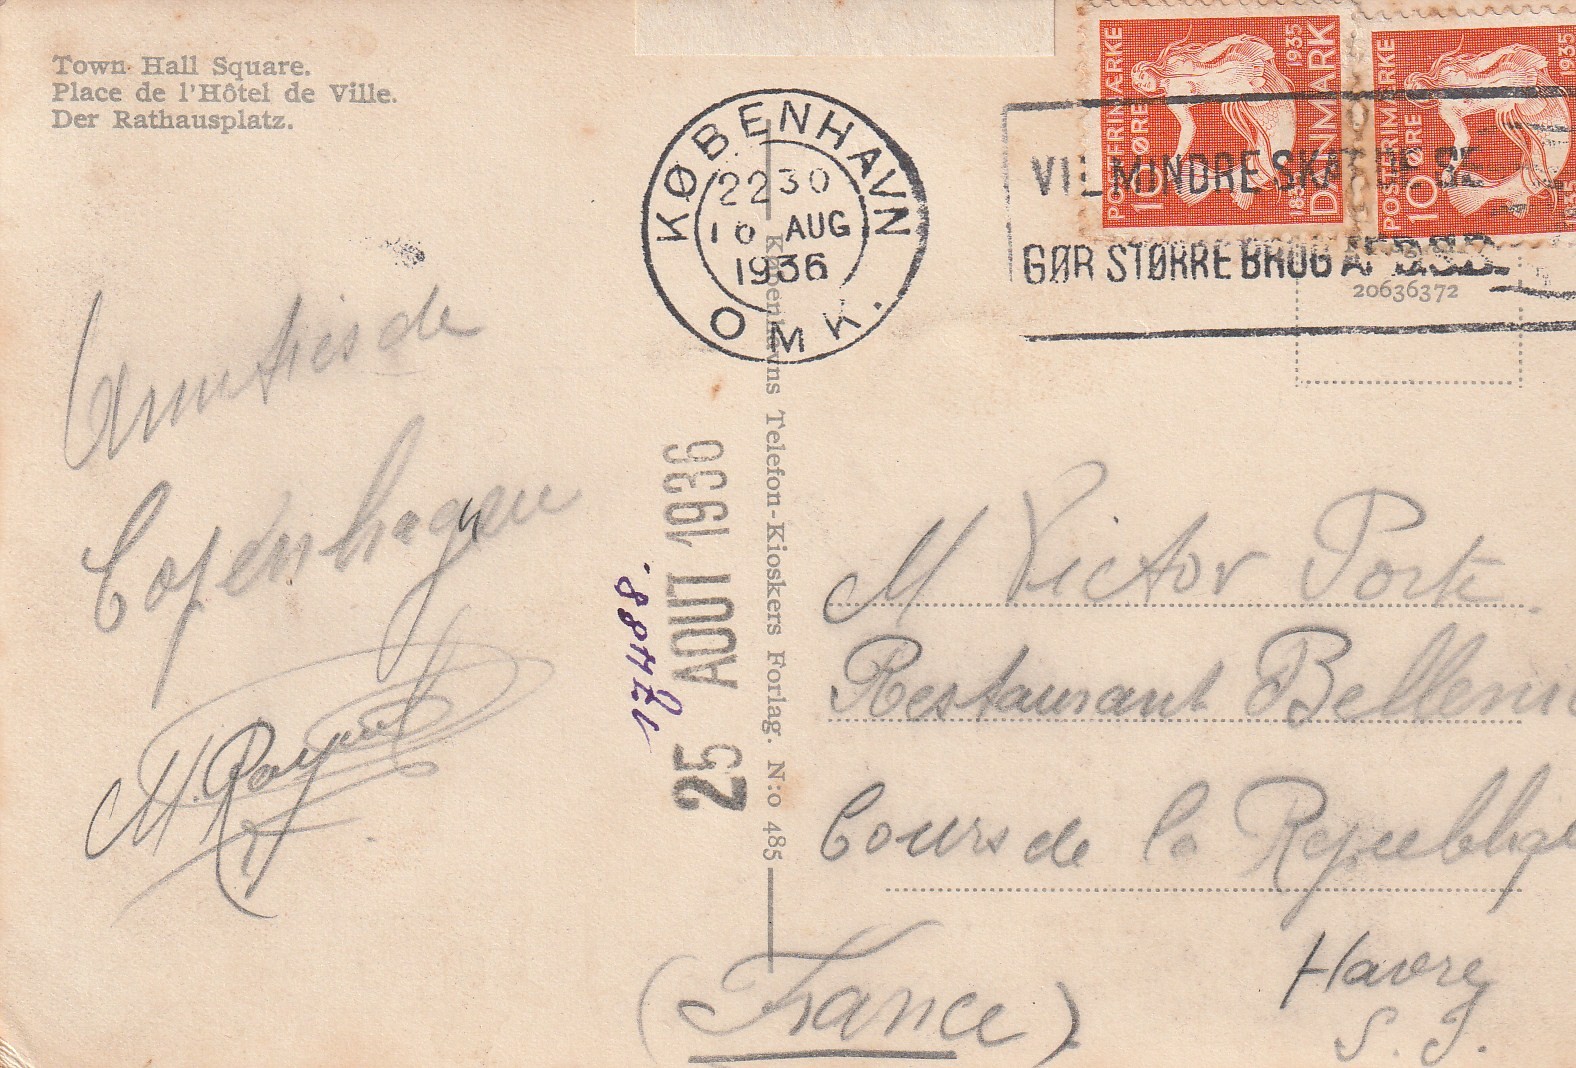 Town Hall Square.
Place de l'Hôtel de Ville.
Der Rathausplatz.
KØBENHAVN
22 30
10 AUG
1936
OMK.
POSTFRIMÆRKE
10 ØRE
1835
1935
DANMARK
POSTFRIMÆRKE
10 ØRE
1935
1835
VIL MINDRE SKA
GØR STØRRE BRUG AF
20636372
Københavns Telefon-Kioskers Forlag. N:o 485
25 AOUT 1936
Amitiés de
Copenhague
M Victor Porte.
Restaurant
Cours de la Republique
Havre
S. I.
(France)